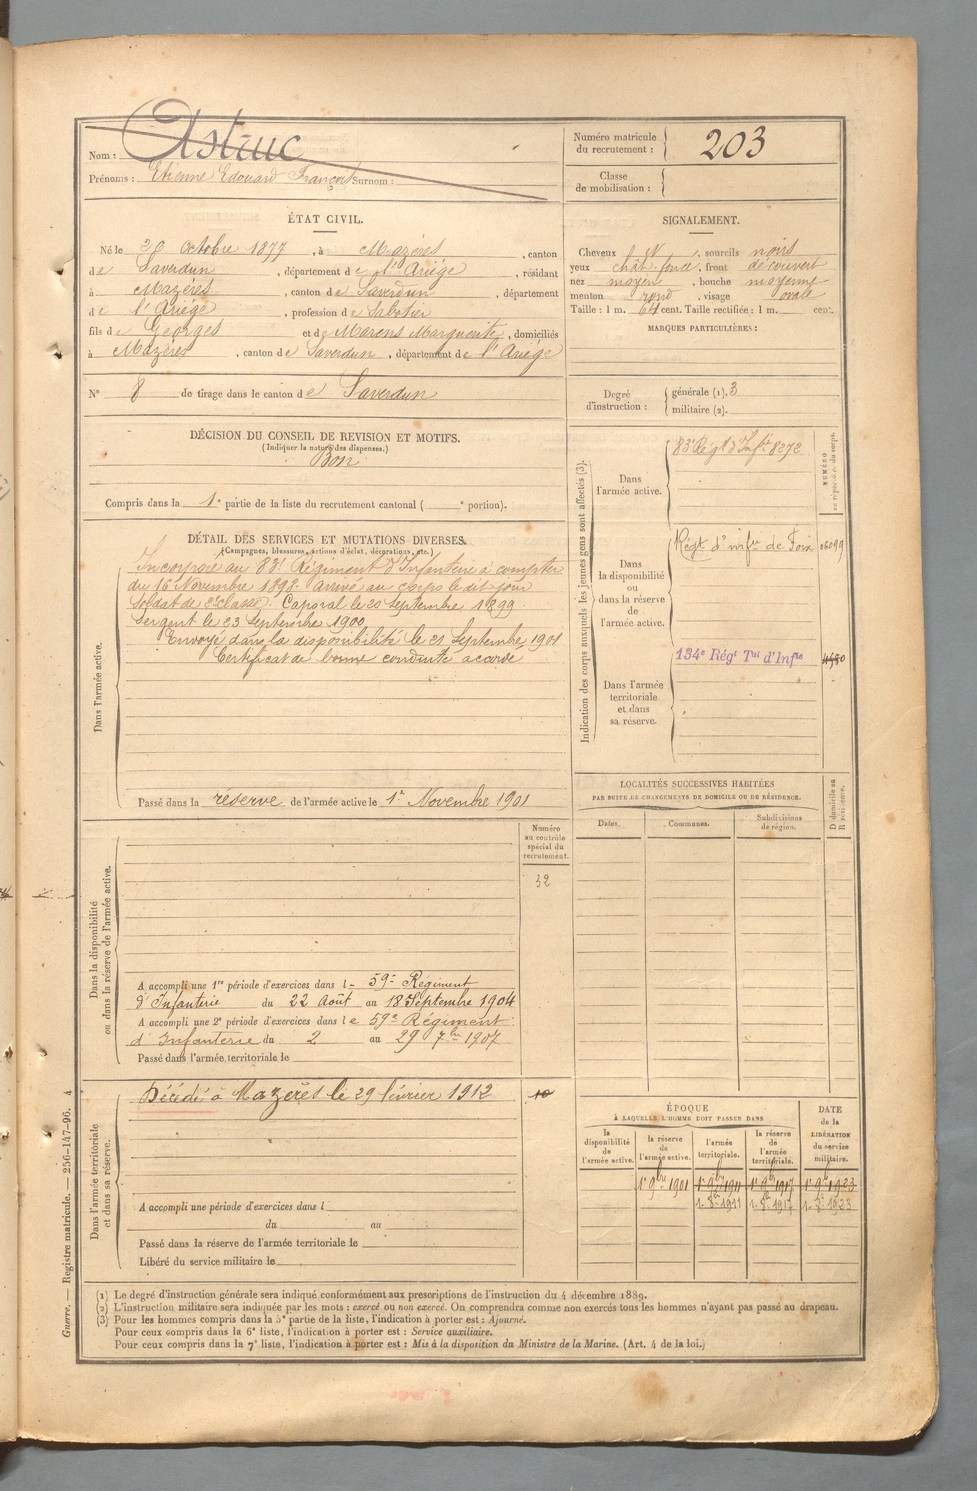 Nom : Astruc
Prénoms : Etienne Edouard François Surnom :
Numéro matricule du recrutement : 203
Classe de mobilisation :
ÉTAT CIVIL.
Né le 26 Octobre 1877, à Mazères, canton
de Saverdun, département de l'Ariége, résidant
à Mazéres, canton de Saverdun, département
de l'Ariége, profession de Sabotier
fils de Georges et de Marens Marguerite, domiciliés
à Mazères, canton de Saverdun, département de l'Ariége
N° 8 de tirage dans le canton de Saverdun
SIGNALEMENT.
Cheveux N, sourcils noirs
yeux chât. foncé, front découvert
nez moyen, bouche moyenne
menton rond, visage ovale
Taille : 1 m. 64 cent. Taille rectifiée : 1 m. cent.
MARQUES PARTICULIÈRES :
Degré d'instruction : générale (1). 3
militaire (2).
DÉCISION DU CONSEIL DE REVISION ET MOTIFS.
(Indiquer la nature des dispenses.)
Bon
Compris dans la 1e partie de la liste du recrutement cantonal ( e portion).
DÉTAIL DES SERVICES ET MUTATIONS DIVERSES.
(Campagnes, blessures, actions d'éclat, décorations, etc.)
Dans l'armée active.
Incorporé au 83e Régiment d'Infanterie à compter
du 16 Novembre 1898. arrivé au corps le dit jour
Soldat de 2e classe. Caporal le 20 Septembre 1899.
Sergent le 23 Septembre 1900
Envoyé dans la disponibilité le 21 Septembre 1901
Certificat de bonne conduite accordé
Passé dans la réserve de l'armée active le 1er Novembre 1901
Indication des corps auxquels les jeunes gens sont affectés (3).
NUMÉRO au répertoire du corps.
Dans l'armée active.
83e Régt d'Infie 8272
Dans la disponibilité ou dans la réserve de l'armée active.
Régt d'infie de Foix
Dans l'armée territoriale et dans sa réserve.
134e Régt Tal d'Infie
LOCALITÉS SUCCESSIVES HABITÉES
PAR SUITE DE CHANGEMENTS DE DOMICILE OU DE RÉSIDENCE.
Dates. Communes. Subdivisions de région.
D domicile ou R résidence.
Numéro au contrôle spécial du recrutement.
32
Dans la disponibilité ou dans la réserve de l'armée active.
A accompli une 1re période d'exercices dans le 59e Régiment
d'Infanterie du 22 Août au 18 Septembre 1904
A accompli une 2e période d'exercices dans le 59e Régiment
d'Infanterie du 2 au 29 7bre 1907
Passé dans l'armée territoriale le
Dans l'armée territoriale et dans sa réserve.
Décédé à Mazerès le 29 février 1912
10
A accompli une période d'exercices dans l
du au
Passé dans la réserve de l'armée territoriale le
Libéré du service militaire le
ÉPOQUE
À LAQUELLE L'HOMME DOIT PASSER DANS
DATE de la LIBÉRATION du service militaire.
la disponibilité de l'armée active. la réserve de l'armée active. l'armée territoriale. la réserve de l'armée territoriale.
1er 9bre 1901 1er 9bre 1911 1er 9bre 1917 1er 9bre 1923
1er 8bre 1911 1er 8bre 1917 1er 8bre 1923
(1) Le degré d'instruction générale sera indiqué conformément aux prescriptions de l'instruction du 4 décembre 1889.
(2) L'instruction militaire sera indiquée par les mots : exercé ou non exercé. On comprendra comme non exercés tous les hommes n'ayant pas passé au drapeau.
(3) Pour les hommes compris dans la 5e partie de la liste, l'indication à porter est : Ajourné.
Pour ceux compris dans la 6e liste, l'indication à porter est : Service auxiliaire.
Pour ceux compris dans la 7e liste, l'indication à porter est : Mis à la disposition du Ministre de la Marine. (Art. 4 de la loi.)
Guerre. — Registre matricule. — 256-147-96. 4